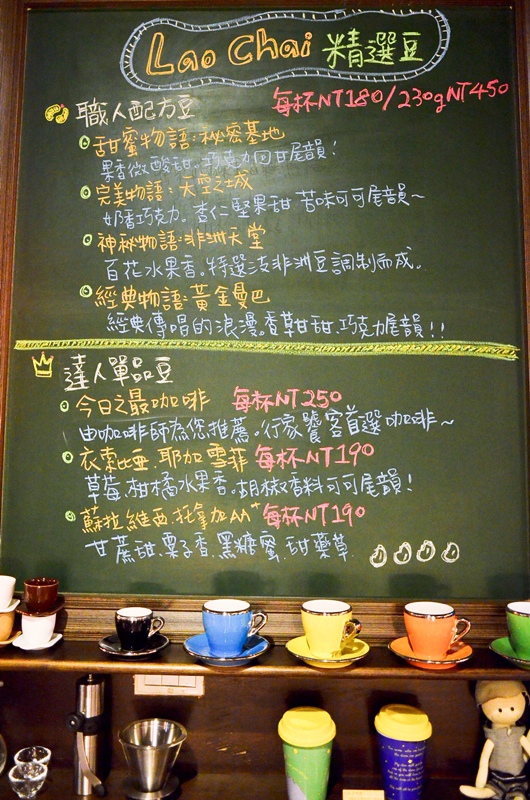 Lao Chai 精選豆
職人配方豆
每杯NT180/230gNT450
甜蜜物語:秘密基地
果香微酸甜.巧克力回甘尾韻!
完美物語:天空之城
奶香巧克力.杏仁堅果甜 苦味可可尾韻~
神秘物語:非洲天堂
百花水果香。特選淺非洲豆調制而成。
經典物語:黃金曼巴
經典傳唱的浪漫。香草甘甜.巧克力尾韻!!
達人單品豆
今日之最咖啡 每杯NT250
由咖啡師為您推薦。行家饕客首選咖啡~
衣索比亞.耶加雪菲 每杯NT190
草莓.柑橘水果香。胡椒香料可可尾韻!
蘇拉維西.托拿加AA⁺ 每杯NT190
甘蔗甜.栗子香.黑糖蜜.甜藥草.